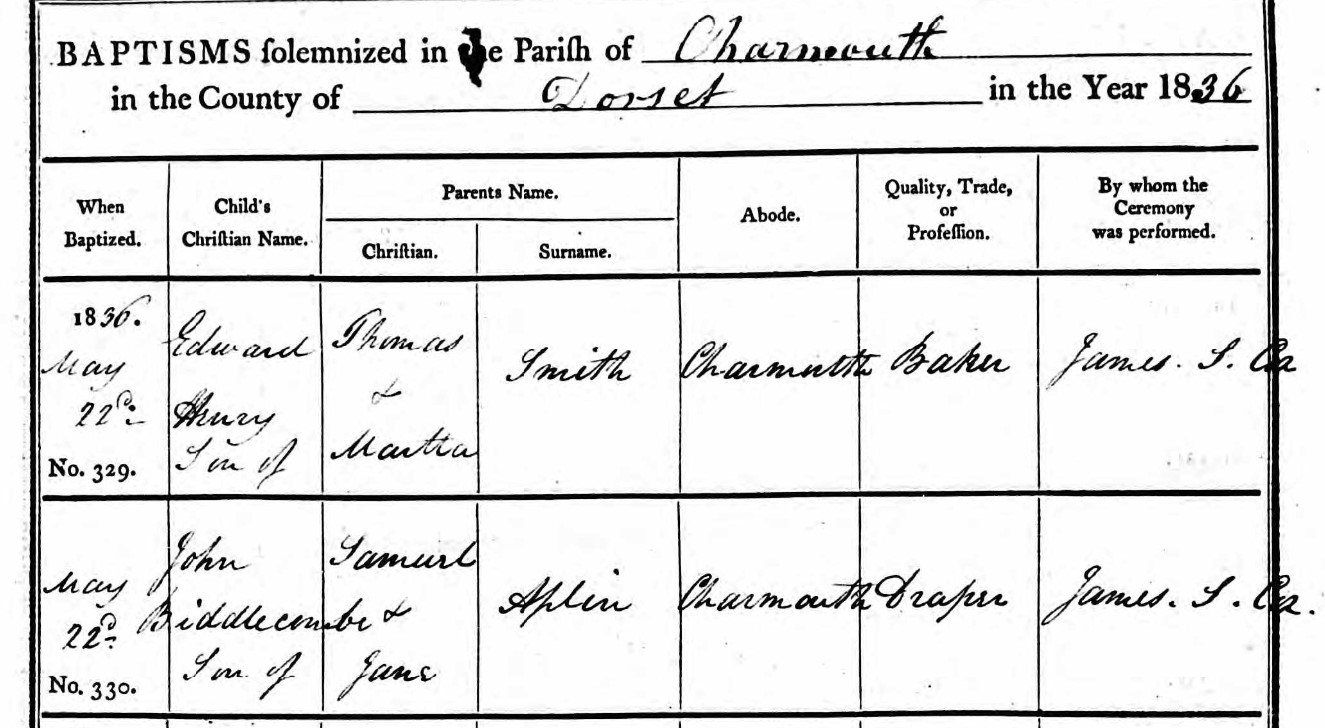 BAPTISMS ſolemnized in the Pariſh of Charmouth
in the County of Dorset in the Year 1836
When Baptized.
Child's Chriſtian Name.
Parents Name.
Chriſtian.
Surname.
Abode.
Quality, Trade, or Profeſſion.
By whom the Ceremony was performed.
1836.
May
22d
No. 329.
Edward
Henry
Son of
Thomas
&
Martha
Smith
Charmouth
Baker
James. S.
May
22d
No. 330.
John
Biddlecombe
Son of
Samuel
&
Jane
Aplin
Charmouth
Draper
James. S.